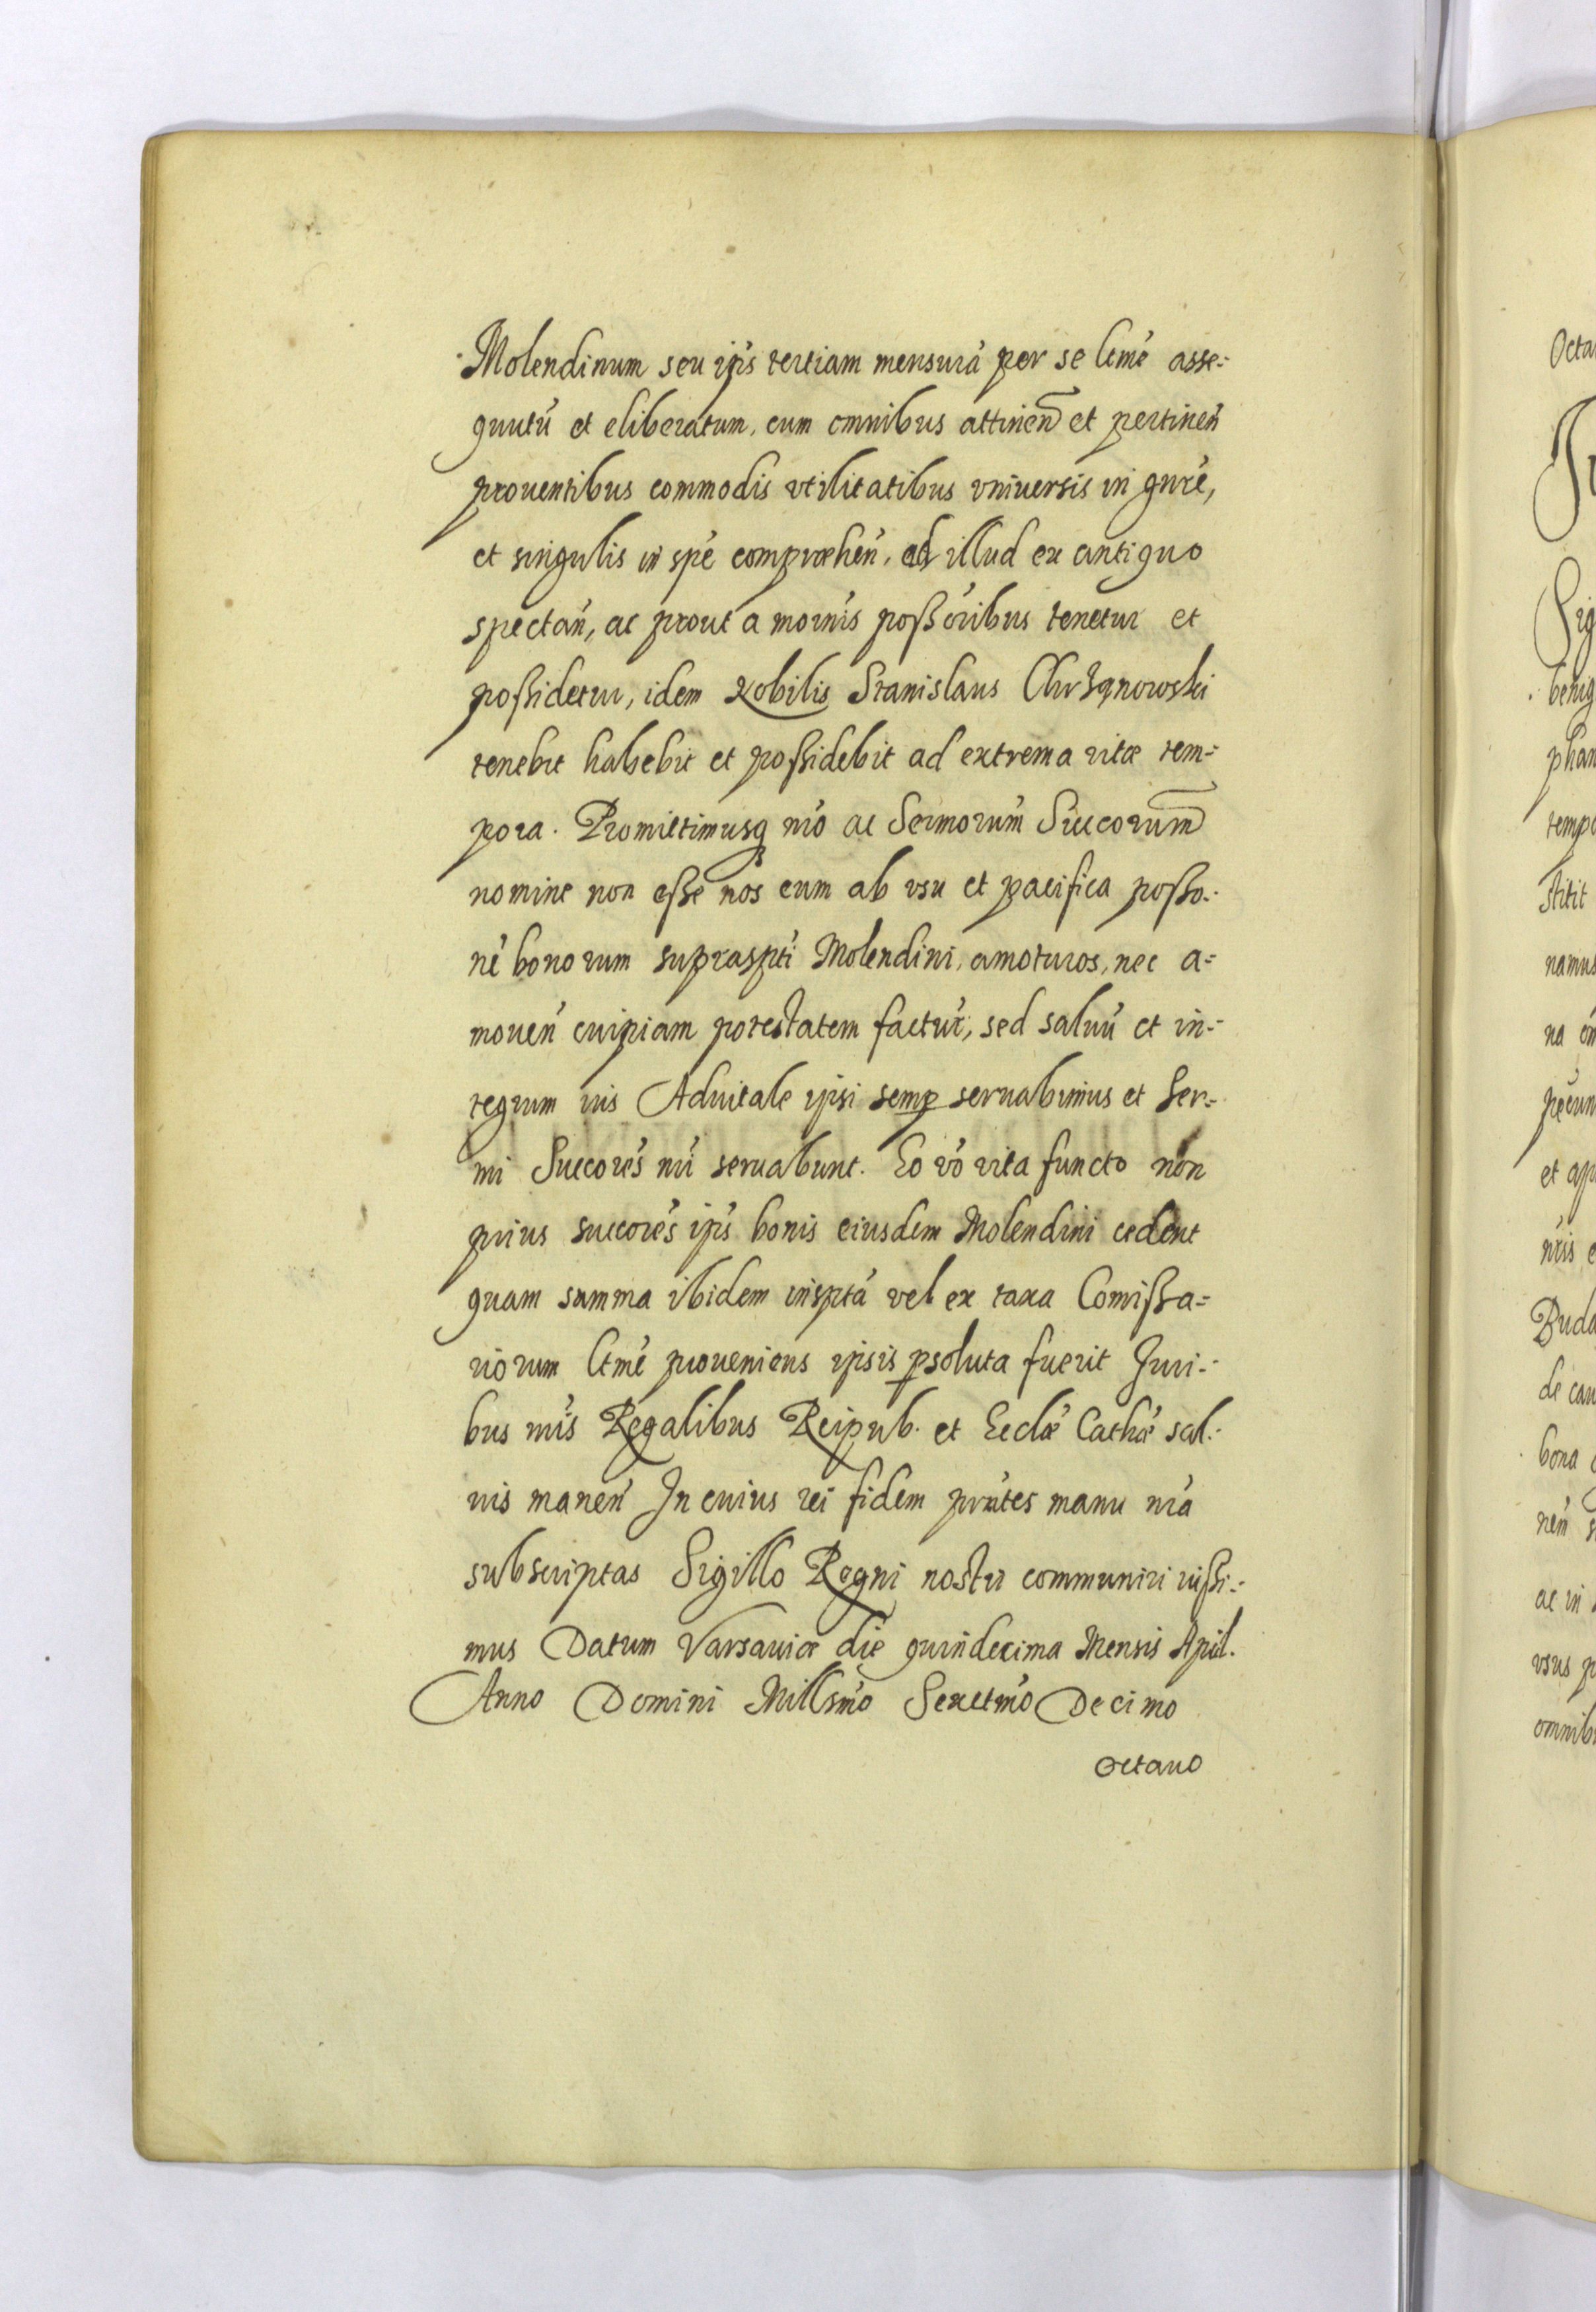 Molendinum seu ip̃s tertiam mensurã per se ltmẽ asse=
quutũ et eliberatum, cum omnibus attinen̄ et pertineñ
prouentibus commodis vtilitatibus vniuersis in gñre,
et singulis in spẽ compræheñ, ad illud ex antiquo
spectañ, ac prout a modernis posßoribus tenetur et
poßidetur, idem Nobilis Stanislaus Chrząnowski
tenebit habebit et poßidebit ad extrema vitæ tem=
pora. Promittimusq nr̃o ac Sermorum̃ Succorum̄
nomine non eße nos eum ab vsu et pacifica poßo=
nẽ bonorum supraspti Molendini, amoturos, nec a=
moueñ cuipiam potestatem factur̃, sed saluũ et in=
tegrum ius Aduitale ipsi semp seruabimus et Ser=
mi Succores̃ nr̃i seruabunt. Eo vo vita functo non
prius succores̃ ip̃s bonis eiusdem Molendini cedent
quam summa ibidem inspta vel ex taxa Comißa=
riorum ltmẽ proueniens ipsis psoluta fuerit Juri=
bus nr̃is Regalibus Reipub. et Ecclæ Cathæ sal=
uis maneñ In cuius rei fidem prñtes manu nr̃a
subscriptas Sigillo Regni nostri communiri iußi=
mus Datum Varsauiæ die quindecima Mensis April.
Anno Domini Millsmo Sexctmo Decimo
octauo
Octa
benig
phan
tempo
stitit
namus
na
pecun
et
Buda
de cau
bona
nem
ac in
vsus p
omnib